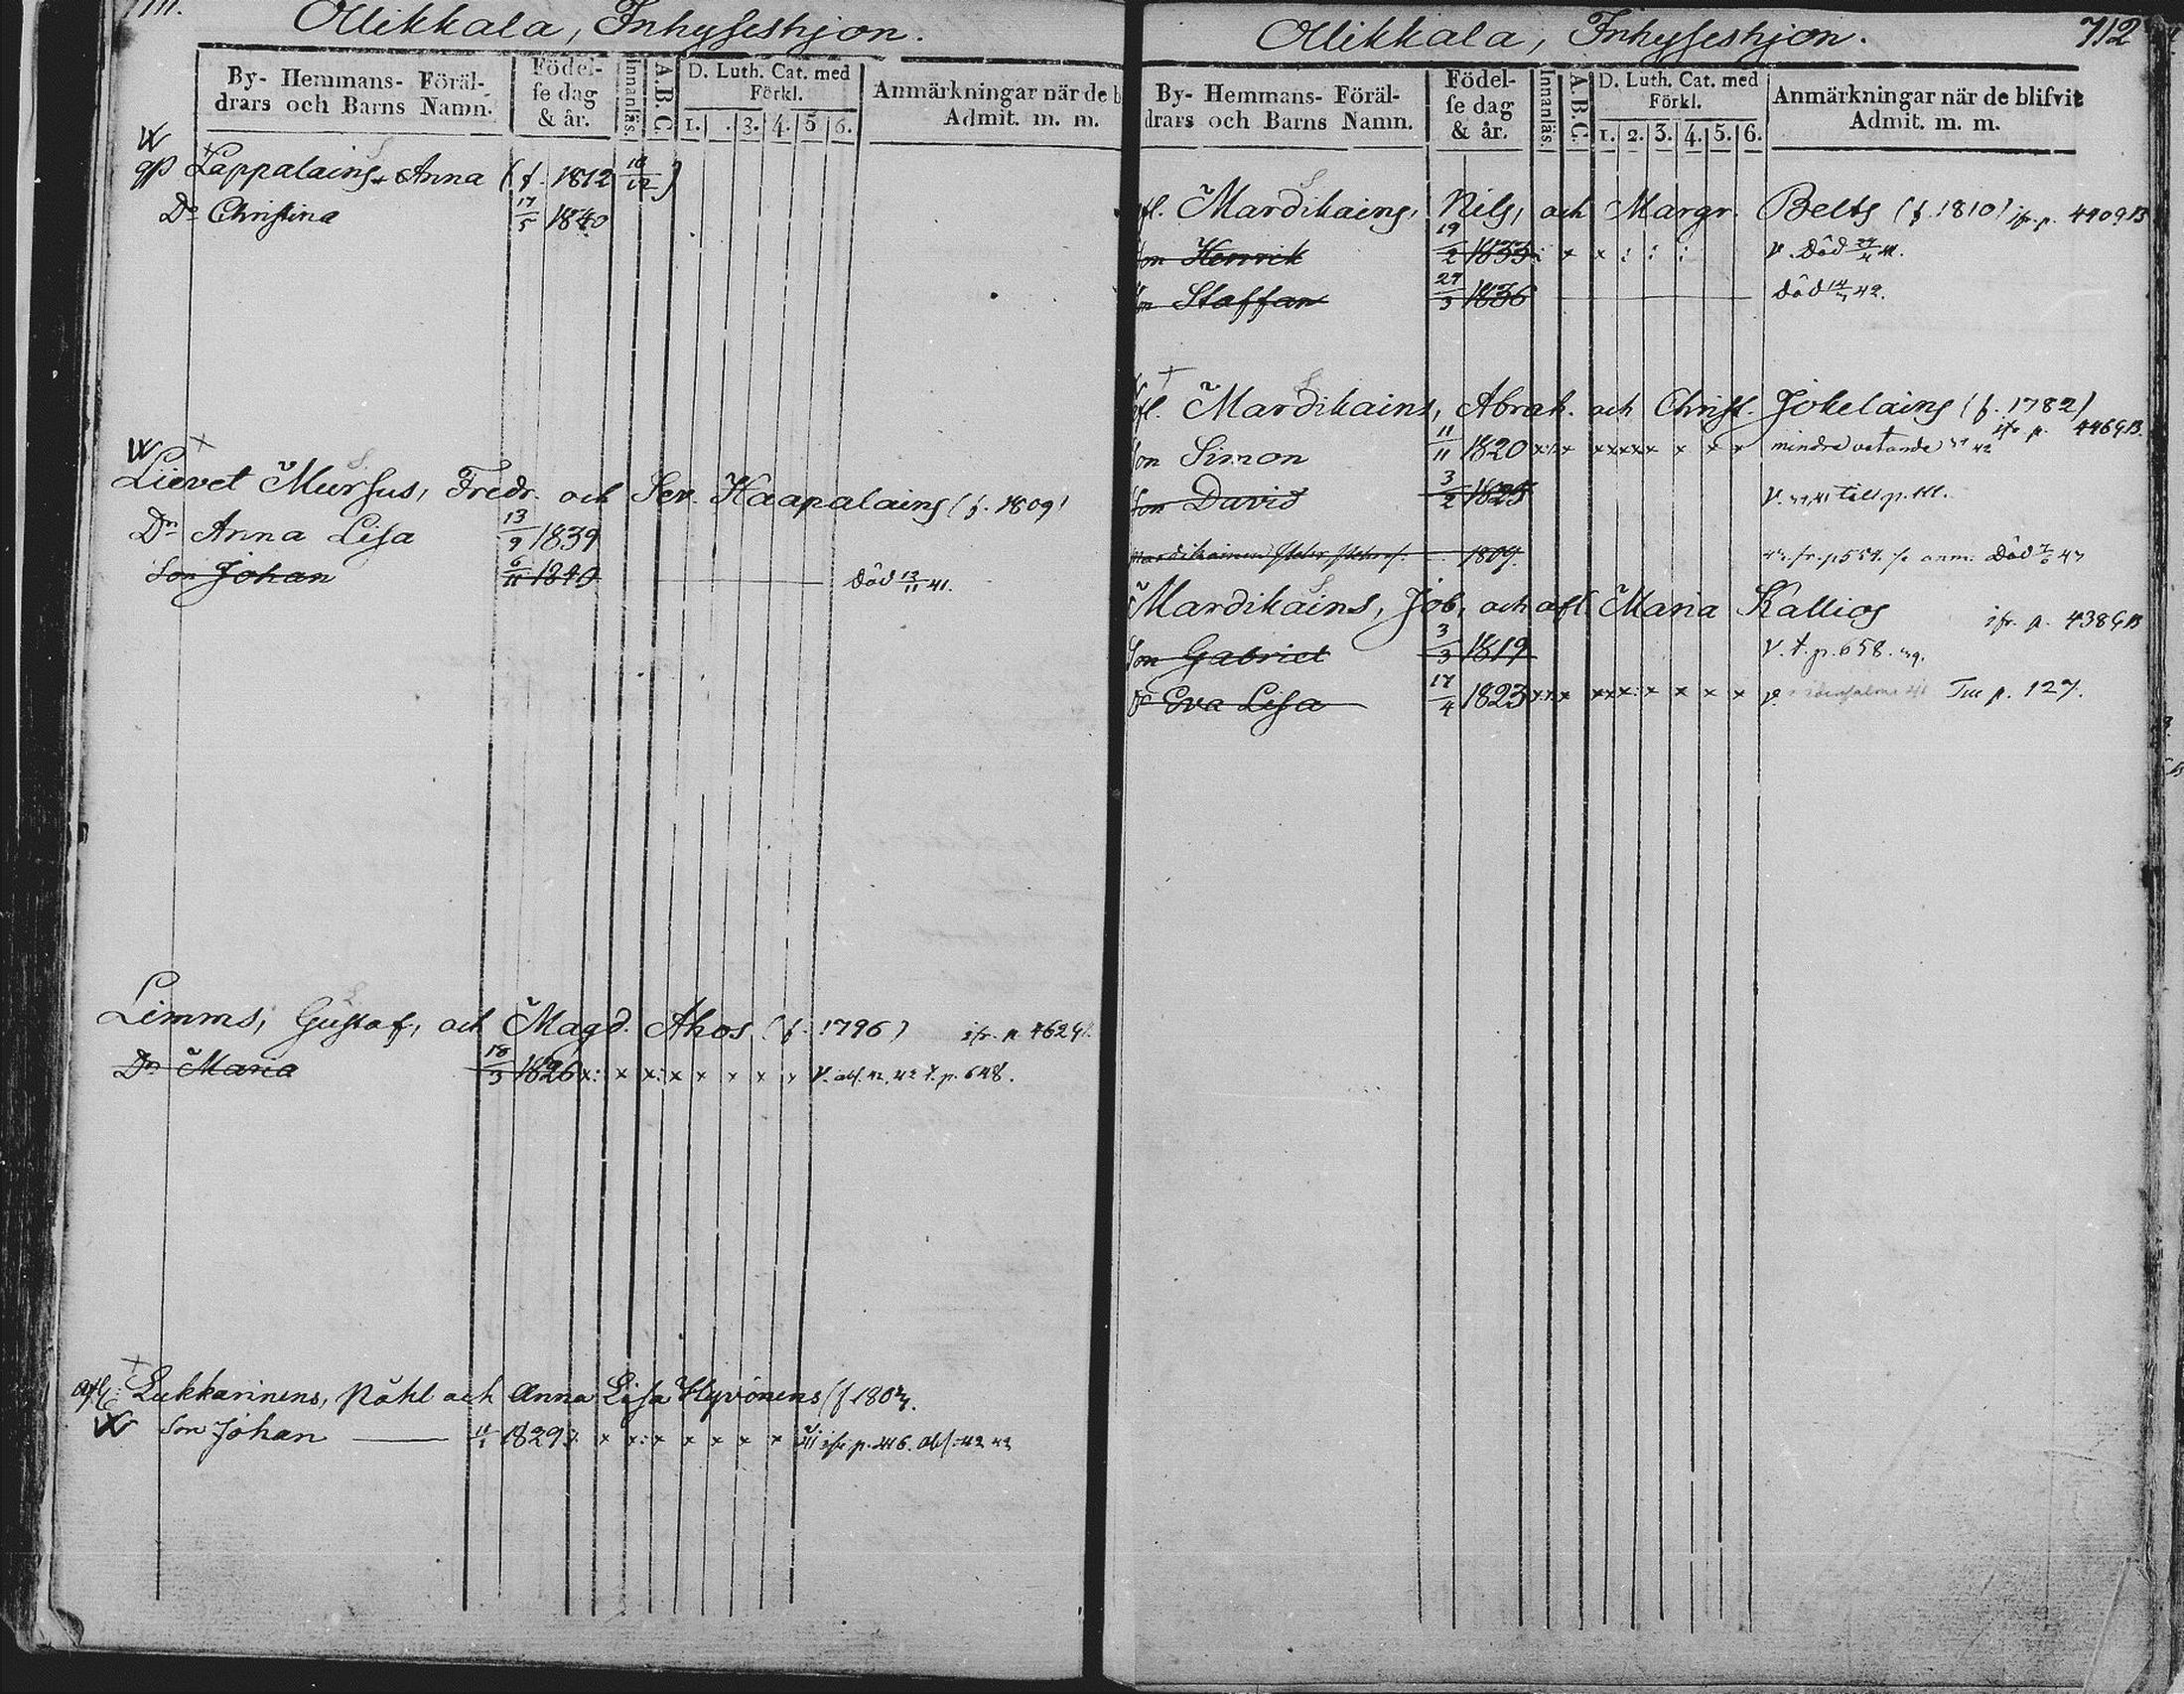 711.
Ollikkala, Inhyseshjon.
By- Hemmans- Föräl-
drars och Barns Namn.
Födel-
se dag
& år.
Innanläs.
A. B. C.
D. Luth. Cat. med
Förkl.
1. . 3. 4. 5 6.
Anmärkningar när de b
Admit. m. m.
Lappalains, Anna (f. 1812 )
Dr Christina 17/5 1840
Lievet Mursus, Fredr. och Ser. Kaapalains (f. 1809)
Dr Anna Lisa 13/9 1839
Son Johan 6/11 1840 död 13/11 41.
Limms, Gustaf, och Magd. Ahos (f. 1796) ifr. p. 462
Dr Maria 1826 x: x x: x x x x x V. abs. 42. t. p. 648.
Lukkarinens, Påhl och Anna Lisa Hyvönens (f 180
Son Johan 1829 x x: x x x x x ifr p. 416. abs: 42 43
Ollikkala, Inhyseshjon.
712
By- Hemmans- Föräl-
drars och Barns Namn.
Födel-
se dag
& år.
Innanläs
A. B. C.
D. Luth. Cat. med
Förkl.
1. 2. 3. 4. 5. 6.
Anmärkningar när de blifvit
Admit. m. m.
fl. Mardikains, Nils, och Margr. Belts (f. 1810) ifr. p. 440
Son Henrik 19/2 1833 : x x : : : V. Död 41.
Son Staffan 27/3 1836 död 42.
fl. Mardikains, Abrah. och Christ. Jokelains (f. 1782)
ifr p. 446
Son Simon 11/11 1820 mindre vetande 42
Son David 3/2 1825 V. till p.
Mardikainen 1809. fr. p 554. anm. Död
Mardikains, Job, och afl. Maria Kallios ifr. p. 438
Son Gabriel 3/3 1819 V. t. p. 658.
Dr Eva Lisa 17/4 1823 p. 127.